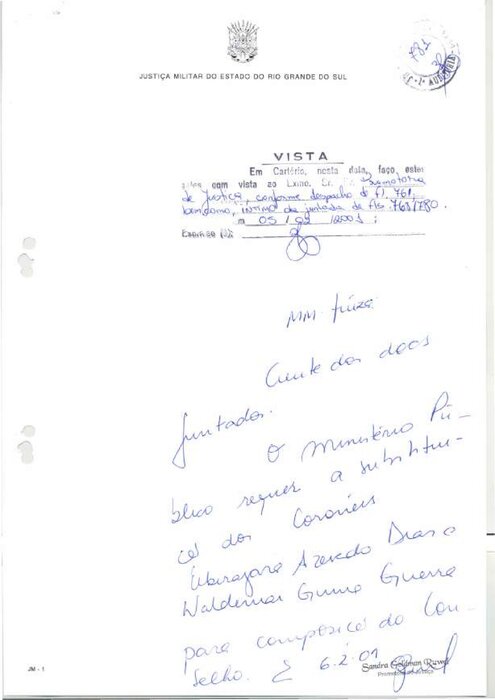 781
1ª AUDITORIA
JUSTIÇA MILITAR DO ESTADO DO RIO GRANDE DO SUL
VISTA
Em Cartório, nesta data, faço estes
autos com vista ao Exmo. Sr. Promotoria
de Justiça, conforme despacho de fl. 761,
bem como, intimo da juntada de fls. 763/780.
Em 05/02/2001:
Escrivão
MM. Juíza
Ciente dos docs
juntados.
O Ministério Pú-
blico requer a substitui-
ção dos Coronéis
Ubirajara Azevedo Dias e
Waldemar Guerra
para composição do Con-
selho. 6.2.01
Sandra Goldman Ruwel
Promotora de Justiça
JM - 1